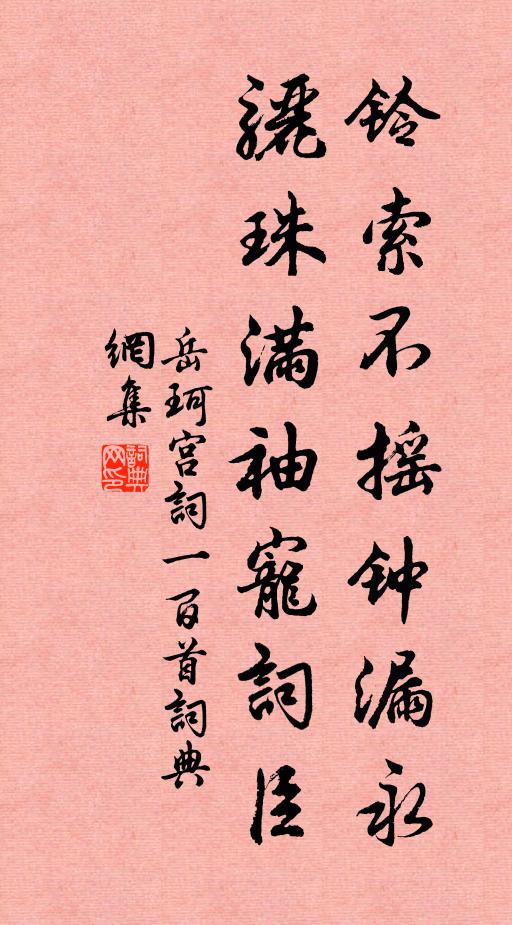 铃索不摇钟漏永
骊珠满袖宠词臣
岳珂宫词一百首词典
网集
词典
网印